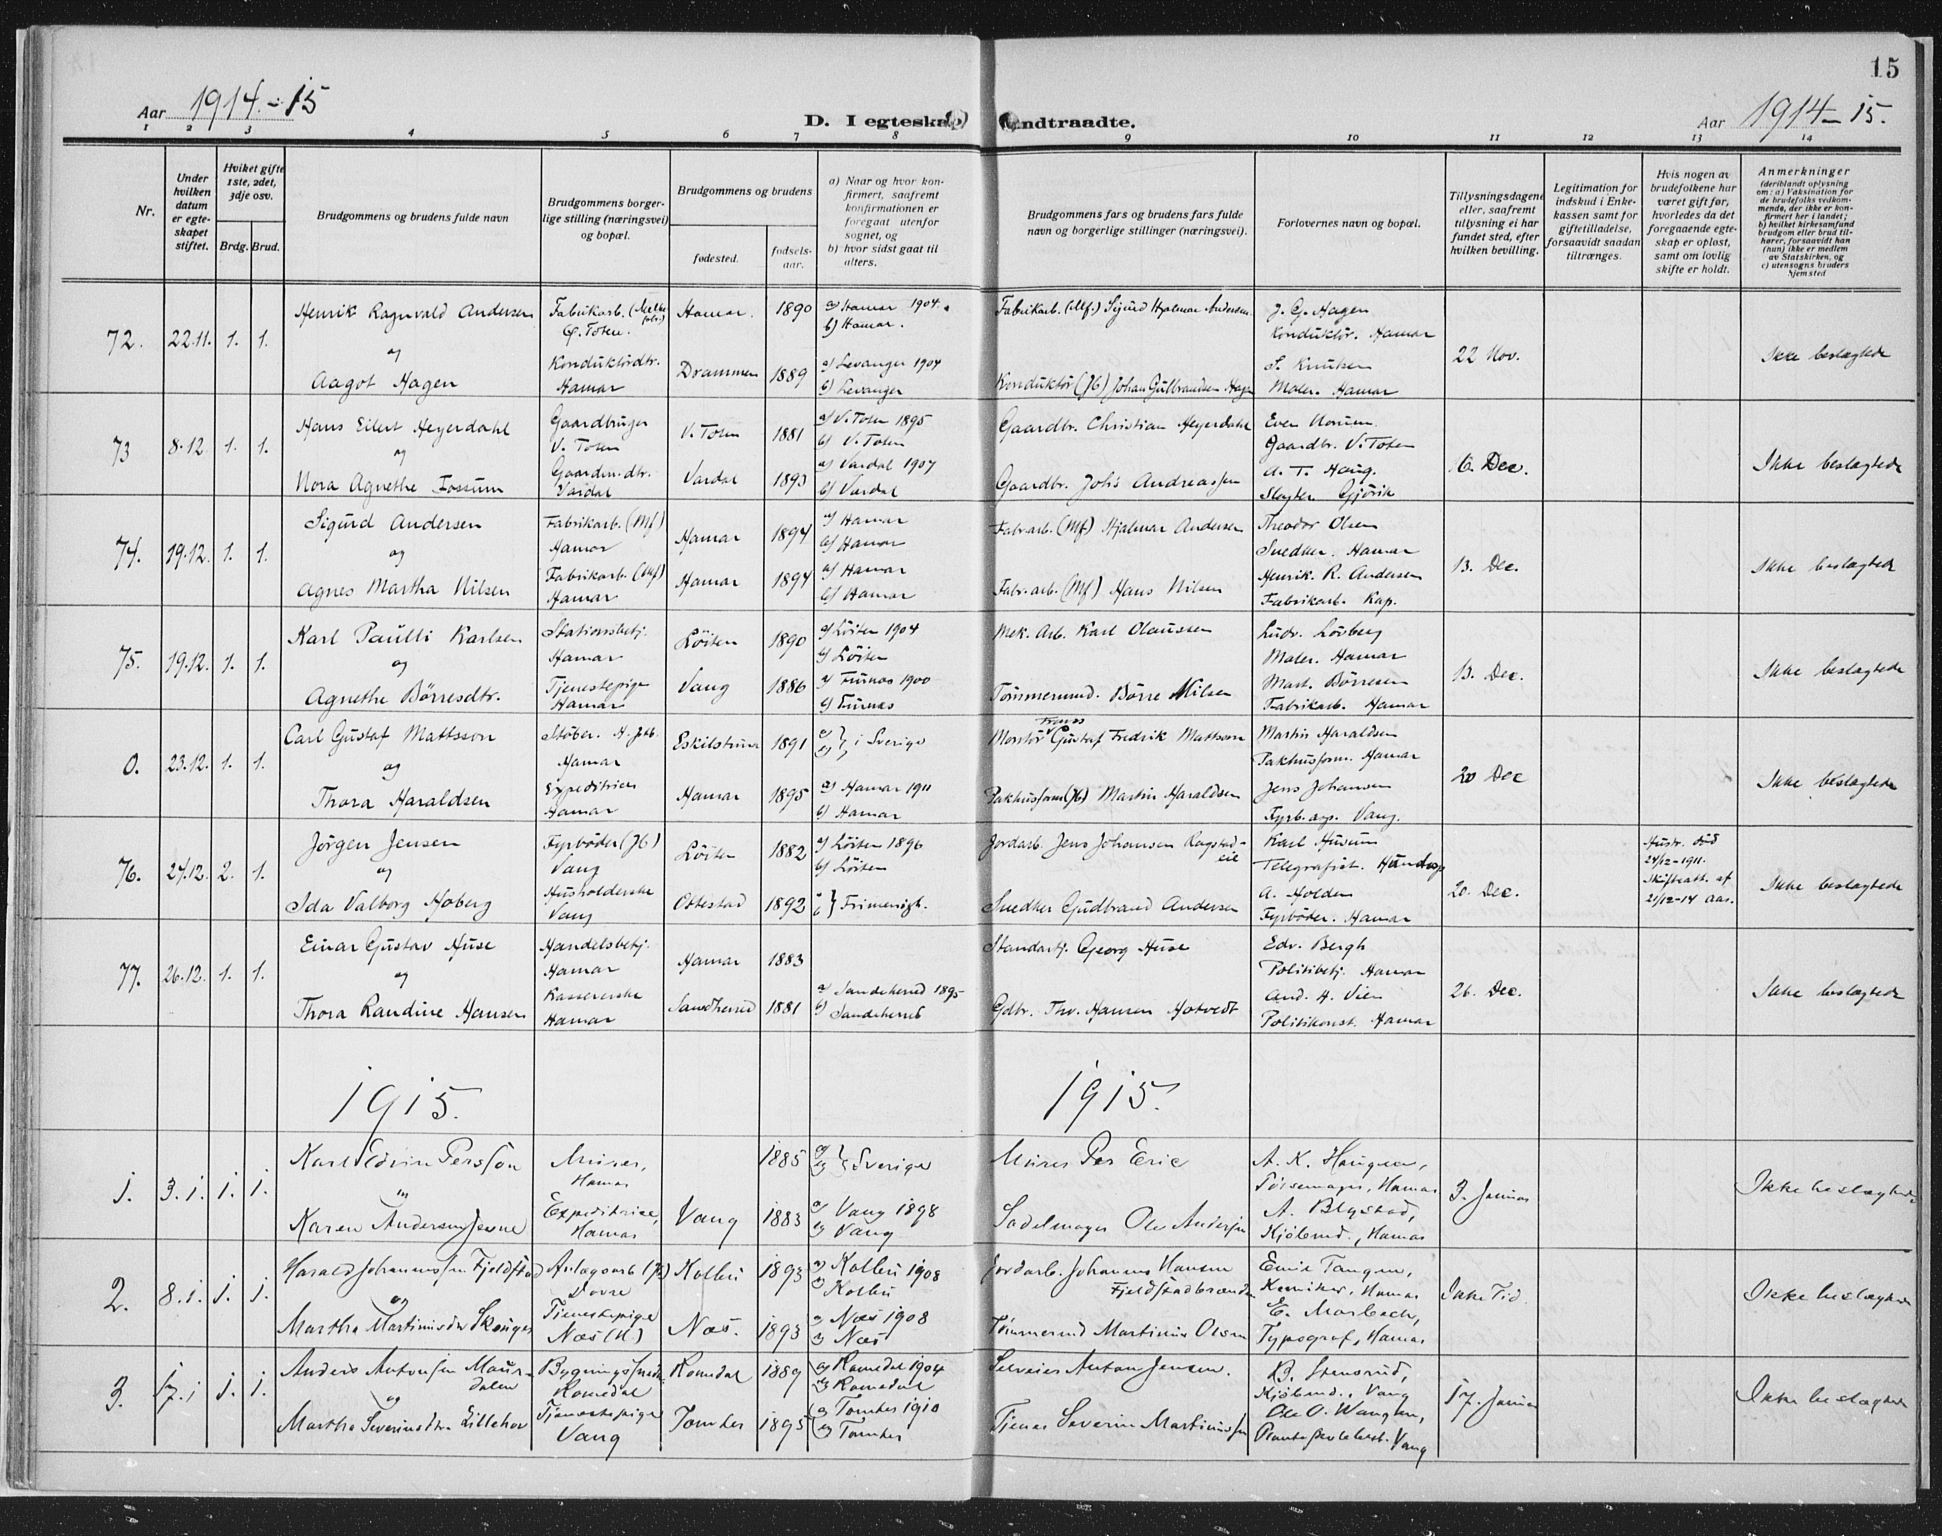 15
Aar 1914-15
D. I egteskap indtraadte.
Aar 1914-15.
1 2 3 4 5 6 7 8 9 10 11 12 13 14
Nr.
Under hvilken datum er egteskapet stiftet.
Hviket gifte 1ste, 2det, 3dje osv.
Brdg. Brud.
Brudgommens og brudens fulde navn
Brudgommens borgerlige stilling (næringsvei) og bopæl.
Brudgommens og brudens
fødested.
fødselsaar.
a) Naar og hvor konfirmert, saafremt konfirmationen er foregaat utenfor sognet, og
b) hvor sidst gaat til alters.
Brudgommens fars og brudens fars fulde navn og borgerlige stillinger (næringsvei).
Forlovernes navn og bopæl.
Tillysningsdagene eller, saafremt tillysning ei har fundet sted, efter hvilken bevilling.
Legitimation for indskud i Enkekassen samt for giftetilladelse, forsaavidt saadan tiltrænges.
Hvis nogen av brudefolkene har været gift før, hvorledes da det foregaaende egteskap er opløst, samt om lovlig skifte er holdt.
Anmerkninger
(deriblandt oplysning om: a) Vaksination for de brudefolks vedkommende, der ikke er konfirmert her i landet; b) hvilket kirkesamfund brudgom eller brud tilhører, forsaavidt han (hun) ikke er medlem av Statskirken, og c) utensogns bruders hjemsted
72. 22.11. 1. 1. Henrik Ragnvald Andersen Fabrikarb. Ø. Toten. Hamar. 1890 a) Hamar 1904. b) Hamar. Fabrikarb. (Mf.) Sigurd Hjalmar Andersen J. G. Hagen Konduktør. Hamar
og
Aagot Hagen Konduktørdtr. Hamar Drammen 1889 a) Levanger 1904 b) Levanger Konduktør (Jb) Johan Gulbrandsen Hagen S. Knutsen Maler. Hamar 22 Nov. Ikke beslægtede
73 8.12 1. 1. Hans Eilert Heyerdahl Gaardbruger V. Toten V. Toten 1881 a) V. Toten 1895 b) V. Toten Gaardbr. Christian Heyerdahl Even Gaardbr. V. Toten
og
Nora Agnethe Fossum Gaardm.dtr. Vardal Vardal 1893 a) Vardal 1907 b) Vardal Gaardbr. Johs Andreassen A. T. Haug. Slagter Gjøvik 6. Dec. Ikke beslægtede
74. 19.12. 1. 1. Sigurd Andersen Fabrikarb. (Mf) Hamar Hamar 1894 a) Hamar b) Hamar Fabr.arb. (Mf) Hjalmar Andersen Theodor Olsen Snedker. Hamar
og
Agnes Martha Nilsen Fabrikarb. (Mf) Hamar Hamar 1894 a) Hamar b) Hamar Fabr.arb. (Mf) Hans Nilsen Henrik. R. Andersen Fabrikarb. Kap. 13. Dec. Ikke beslægtede
75. 19.12. 1. 1. Karl Paulli Karlsen Stationsbetj. Hamar Löiten 1890 a) Löiten 1904 b) Löiten Mek. Arb. Karl Olaussen Ludv. Lovberg Maler. Hamar
og
Agnethe Börresdtr. Tjenestepige Hamar Vang 1886 a) Furnes 1900 b) Furnes Tömmermd. Börre Nilsen Mart. Börresen Fabrikarb. Hamar 13. Dec. Ikke beslægtede
0. 23.12. 1. 1. Carl Gustaf Mattsson Støber. H. Jstb. Hamar Eskilstuna 1891 a) b) i Sverige Montör Gustaf Fredrik Mattsson Martin Haraldsen Pakhusform. Hamar
og
Thora Haraldsen Expeditrice Hamar Hamar 1895 a) Hamar 1911 b) Hamar Pakhusform (Jb) Martin Haraldsen Jens Johansen Fyrb.asp. Vang. 20 Dec Ikke beslægtede
76. 24.12. 2. 1. Jørgen Jensen Fyrbøder (Jb) Vang Løiten 1882 a) Löiten 1896 b) Löiten Jordarb. Jens Johansen Ragstadeie Karl Husum Telegrafist.
og
Ida Valborg Hoberg Husholderske Vang Ottestad 1892 a b } Frimenigh. Snedker Gudbrand Andersen A. Holden Fyrbøder. Hamar 20. Dec. Hustr. död 24/12-1911. Skifteatt. af 21/12-14 Ikke beslægtede
77. 26.12. 1. 1. Einar Gustav Huse Handelsbetj. Hamar Hamar 1883 Georg Huse Edv. Bergh Politibetj. Hamar
og
Thora Randine Hansen Kassererske Hamar Sandherred 1881 a) Sandeherred 1895 b) Sandeherred Gdbr. Thv. Hansen Hotvedt And. H. Vien Politikonst. Hamar 26. Dec. Ikke beslægtede
1915. 1915.
1. 3.1. 1. 1. Karl Edvin Persson Murer, Hamar 1885 a) b) } Sverige Murer Per Eric A. K. Haugen, Børsemager, Hamar
og
Karen Andersen Jevne Expeditrice, Hamar Vang 1883 a) Vang 1898 b) Vang Sadelmager Ole Andersen A. Blystad, Kjøbmd., Hamar 3. Januar Ikke beslægtede
2. 8.1. 1. 1. Harald Johannessen Fjeldstad Anlægsarb (Jb) Dovre Kolbu 1893 a) Kolbu 1908 b) Kolbu Jordarb. Johannes Hansen Fjeldstadbrænden Emil Tangen, Kemiker, Hamar
og
Martha Martinisdtr Skouger Tjenestepige Næs (H) Næs. 1893 a) Næs 1908 b) Næs Tömmermd Martinus Olsen E. Marbech, Typograf, Hamar Ikke Tid Ikke beslægtede
3. 17.1 1. 1. Anders Antonsen Maurdalen Bygningssnedk. Romedal Romedal 1889 a) Romedal 1904 b) Romedal Selveier Anton Jensen. B. Stensrud, Kjøbmd., Vang
og
Martha Severinsdtr. Lillehov Tjenestepige Vang Tomter 1895 a) Tomter 1910 b) Tomter Tjener Severin Martinussen Ole O. Wangen, Vang 17. Januar Ikke beslægtede